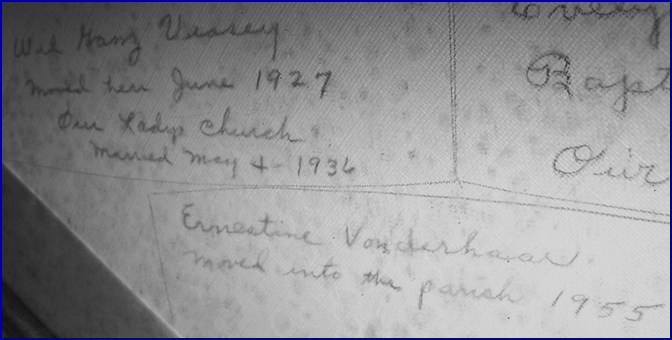 Wil Ganz Veasey
Moved here June 1927
Our Ladys Church
Married May 4 - 1936
Bapt
Our
Ernestine Vonderhaar
moved into the parish 1955